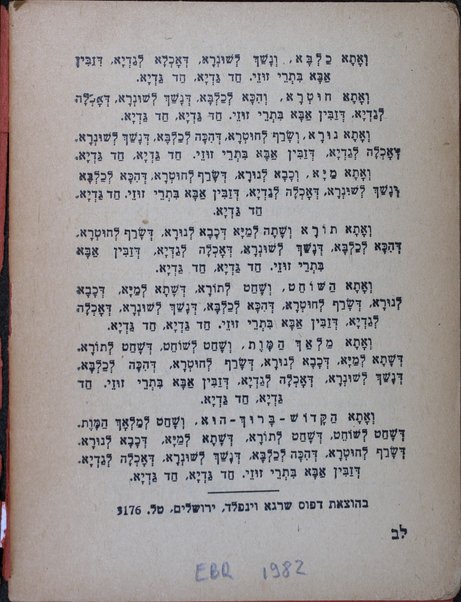 וְאָתָא כַלְבָּא, וְנָשַׁךְ לְשׁוּנְרָא, דְּאָכְלָא לְגַדְיָא, דְּזַבִּין
אַבָּא בִּתְרֵי זוּזֵי. חַד גַּדְיָא, חַד גַּדְיָא.
וְאָתָא חוּטְרָא, וְהִכָּא לְכַלְבָּא, דְּנָשַׁךְ לְשׁוּנְרָא, דְּאָכְלָה
לְגַדְיָא, דְּזַבִּין אַבָּא בִּתְרֵי זוּזֵי. חַד גַּדְיָא, חַד גַּדְיָא.
וְאָתָא נוּרָא, וְשָׂרַף לְחוּטְרָא, דְּהִכָּה לְכַלְבָּא, דְּנָשַׁךְ לְשׁוּנְרָא.
דְּאָכְלָה לְגַדְיָא, דְּזַבִּין אַבָּא בִּתְרֵי זוּזֵי. חַד גַּדְיָא, חַד גַּדְיָא.
וְאָתָא מַיָּא, וְכָבָא לְנוּרָא, דְּשָׂרַף לְחוּטְרָא, דְּהִכָּא לְכַלְבָּא
דְּנָשַׁךְ לְשׁוּנְרָא, דְּאָכְלָה לְגַדְיָא, דְּזַבִּין אַבָּא בִּתְרֵי זוּזֵי. חַד גַּדְיָא,
חַד גַּדְיָא.
וְאָתָא תוֹרָא וְשָׁתָה לְמַיָּא דְּכָבָא לְנוּרָא, דְּשָׂרַף לְחוּטְרָא,
דְּהִכָּא לְכַלְבָּא, דְּנָשַׁךְ לְשׁוּנְרָא, דְּאָכְלָה לְגַדְיָא, דְּזַבִּין אַבָּא
בִּתְרֵי זוּזֵי. חַד גַּדְיָא, חַד גַּדְיָא.
וְאָתָא הַשּׁוֹחֵט, וְשָׁחַט לְתוֹרָא, דְּשָׁתָא לְמַיָּא, דְּכָבָא
לְנוּרָא, דְּשָׂרַף לְחוּטְרָא, דְּהִכָּא לְכַלְבָּא, דְּנָשַׁךְ לְשׁוּנְרָא, דְּאָכְלָה
לְגַדְיָא, דְּזַבִּין אַבָּא בִּתְרֵי זוּזֵי. חַד גַּדְיָא, חַד גַּדְיָא.
וְאָתָא מַלְאַךְ הַמָּוֶת, וְשָׁחַט לְשׁוֹחֵט, דְּשָׁחַט לְתוֹרָא.
דְּשָׁתָא לְמַיָּא, דְּכָבָא לְנוּרָא, דְּשָׂרַף לְחוּטְרָא, דְּהִכָּה לְכַלְבָּא,
דְּנָשַׁךְ לְשׁוּנְרָא, דְּאָכְלָה לְגַדְיָא, דְּזַבִּין אַבָּא בִּתְרֵי זוּזֵי. חַד
גַּדְיָא, חַד גַּדְיָא.
וְאָתָא הַקָּדוֹשׁ-בָּרוּךְ-הוּא, וְשָׁחַט לְמַלְאַךְ הַמָּוֶת.
דְּשָׁחַט לְשׁוֹחֵט, דְּשָׁחַט לְתוֹרָא, דְּשָׁתָא לְמַיָּא, דְּכָבָא לְנוּרָא.
דְּשָׂרַף לְחוּטְרָא, דְּהִכָּה לְכַלְבָּא, דְּנָשַׁךְ לְשׁוּנְרָא, דְּאָכְלָה לְגַדְיָא.
דְּזַבִּין אַבָּא בִּתְרֵי זוּזֵי. חַד גַּדְיָא, חַד גַּדְיָא.
בהוצאת דפוס שרגא וינפלד, ירושלים, טל. 3176
לב
EBR 1982